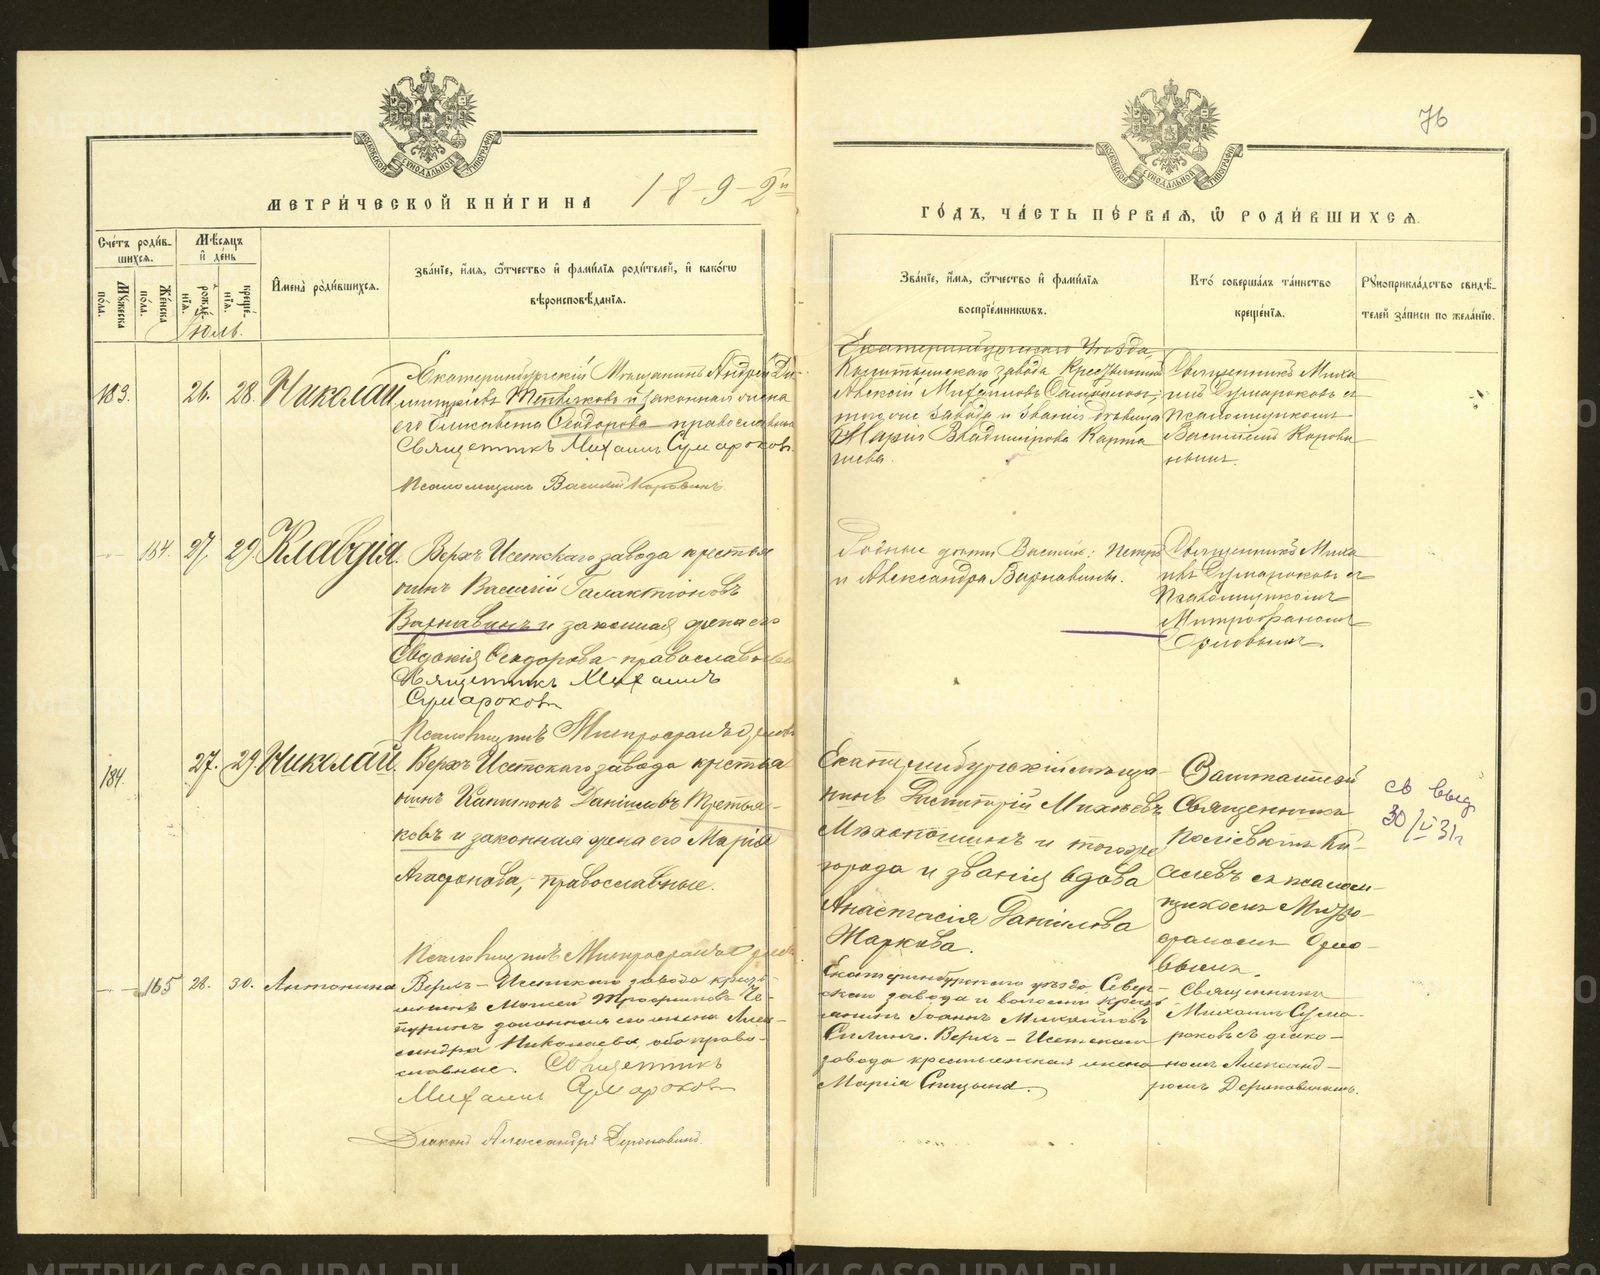 76
МЕТРИЧЕСКОЙ КНИГИ НА 1892й
ГОДЪ, ЧАСТЬ ПЕРВАЯ, Ѡ РОДИВШИХСЯ.
Счетъ родив-
шихся.
Мужеска пола.
Женска пола.
Мѣсяцъ и день
рожде-
нія.
креще-
нія.
Имена родившихся.
Званіе, имя, ѻтчество и фамилія родителей, и какогѡ
вѣроисповѣданія.
Званіе, имя, ѻтчество и фамилія
воспріемникѡвъ.
Кто совершалъ таинство
крещенія.
Рукоприкладство свидѣ-
телей записи по желанію.
Іюль.
183. 26. 28. Николай
Екатеринбургскій Мѣщанинъ Андрей Ди-
митріевъ и законная жена
его Елисавета Ѳеодорова православные
Священникъ Михаилъ Сумароковъ
Псаломщикъ Василій Коровинъ
Екатеринбургскаго Уѣзда,
завода
Алексій Михайловъ
того же завода и званія дѣвица
Марія Владимірова
Священникъ Миха
илъ Сумароковъ съ
Псаломщикомъ
Василіемъ Корови
нымъ.
184. 27. 29. Клавдія.
Верхъ Исетскаго завода крестья
нинъ Василій Галактіоновъ
Варнавинъ и законная жена его
Евдокія Ѳеодорова православные
Священникъ Михаилъ
Сумароковъ
Псаломщикъ Митрофанъ Орловъ
Родные дѣти Василія: Петръ
и Александра Варнавины.
Священникъ Миха
илъ Сумароковъ съ
Псаломщикомъ
Митрофаномъ
Орловымъ
184. 27. 29. Николай.
Верхъ Исетскаго завода крестья
нинъ Капитонъ Даніиловъ Третья-
ковъ и законная жена его Марія
Агафонова, православные.
Псаломщикъ Митрофанъ Орловъ
Екатеринбургскій мѣща-
нинъ Димитрій Михѣевъ
и тогоже
города и званія вдова
Анастасія Даніилова
Жаркова.
Заштатный
Священникъ
съ псалом-
щикомъ Митро-
фаномъ Орло-
вымъ.
30/V 31г
165 28. 30. Антонина
Верхъ-Исетскаго завода кресть-
янинъ Моисей Трофимовъ Че-
пуринъ законная его жена Алек-
сандра Николаева, оба право-
славные. Священникъ
Михаилъ Сумароковъ
Діаконъ Александръ
Екатеринбургскаго уѣзда, Север-
скаго завода и волости крестья
янинъ Іоаннъ Михайловъ
Верхъ-Исетскаго
завода крестьянская жена
Марія
Священникъ
Михаилъ Сума-
роковъ съ діако-
номъ Александ-
ромъ
METRIKI.GASO-URAL.RU